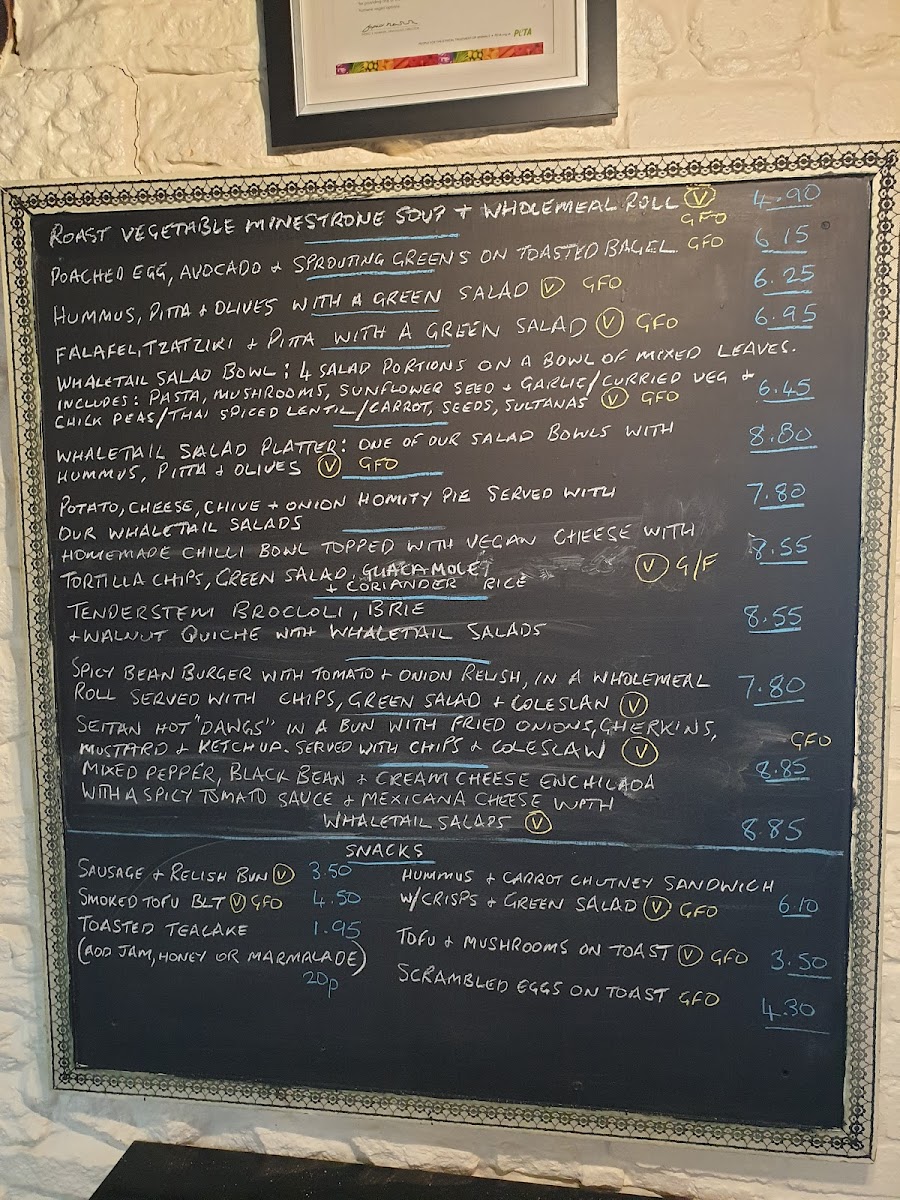 PETA
ROAST VEGETABLE MINESTRONE SOUP + WHOLEMEAL ROLL V GFO 4.90
POACHED EGG, AVOCADO + SPROUTING GREENS ON TOASTED BAGEL GFO 6.15
HUMMUS, PITTA + OLIVES WITH A GREEN SALAD V GFO 6.25
FALAFEL, TZATZIKI + PITTA WITH A GREEN SALAD V GFO 6.95
WHALETAIL SALAD BOWL: 4 SALAD PORTIONS ON A BOWL OF MIXED LEAVES.
INCLUDES: PASTA, MUSHROOMS, SUNFLOWER SEED + GARLIC/CURRIED VEG +
CHICK PEAS/THAI SPICED LENTIL/CARROT, SEEDS, SULTANAS V GFO 6.45
WHALETAIL SALAD PLATTER: ONE OF OUR SALAD BOWLS WITH 8.80
HUMMUS, PITTA + OLIVES V GFO
POTATO, CHEESE, CHIVE + ONION HOMITY PIE SERVED WITH 7.80
OUR WHALETAIL SALADS
HOMEMADE CHILLI BOWL TOPPED WITH VEGAN CHEESE WITH 8.55
TORTILLA CHIPS, GREEN SALAD, GUACAMOLE, V G/F
+ CORIANDER RICE
TENDERSTEM BROCLOLI, BRIE 8.55
+ WALNUT QUICHE WITH WHALETAIL SALADS
SPICY BEAN BURGER WITH TOMATO + ONION RELISH, IN A WHOLEMEAL 7.80
ROLL SERVED WITH CHIPS, GREEN SALAD + COLESLAW V
SEITAN HOT "DAWGS" IN A BUN WITH FRIED ONIONS, GHERKINS, GFO
MUSTARD + KETCHUP. SERVED WITH CHIPS + COLESLAW V 8.85
MIXED PEPPER, BLACK BEAN + CREAM CHEESE ENCHILADA
WITH A SPICY TOMATO SAUCE + MEXICANA CHEESE WITH
WHALETAIL SALADS V 8.85
SNACKS
SAUSAGE + RELISH BUN V 3.50
SMOKED TOFU BLT V GFO 4.50
TOASTED TEACAKE 1.95
(ADD JAM, HONEY OR MARMALADE)
20p
HUMMUS + CARROT CHUTNEY SANDWICH
W/CRISPS + GREEN SALAD V GFO 6.10
TOFU + MUSHROOMS ON TOAST V GFO 3.50
SCRAMBLED EGGS ON TOAST GFO 4.30